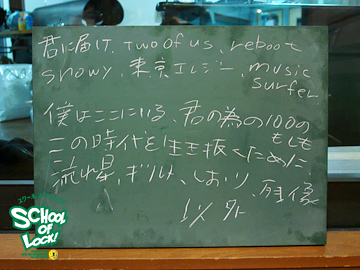 君に届け、two of us、reboot
snowy、東京エレジー、music
surfer
僕はここにいる、君の為の100の
もしも
この時代を生き抜くために
流れ星、ギルト、しおり、残像
以外
SCHOOL
OF
LOCK!